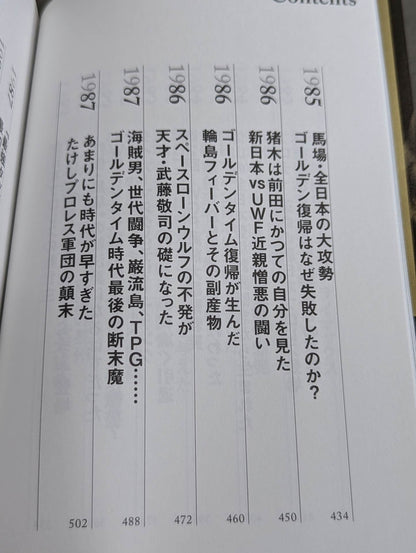 Contents
1985
馬場・全日本の大攻勢
ゴールデン復帰はなぜ失敗したのか？
434
1986
猪木は前田にかつての自分を見た
新日本vsUWF近親憎悪の闘い
450
1986
ゴールデンタイム復帰が生んだ
輪島フィーバーとその副産物
460
1986
スペースローンウルフの不発が
天才・武藤敬司の礎になった
472
1987
海賊男、世代闘争、巌流島、TPG……
ゴールデンタイム時代最後の断末魔
488
1987
あまりにも時代が早すぎた
たけしプロレス軍団の顛末
502